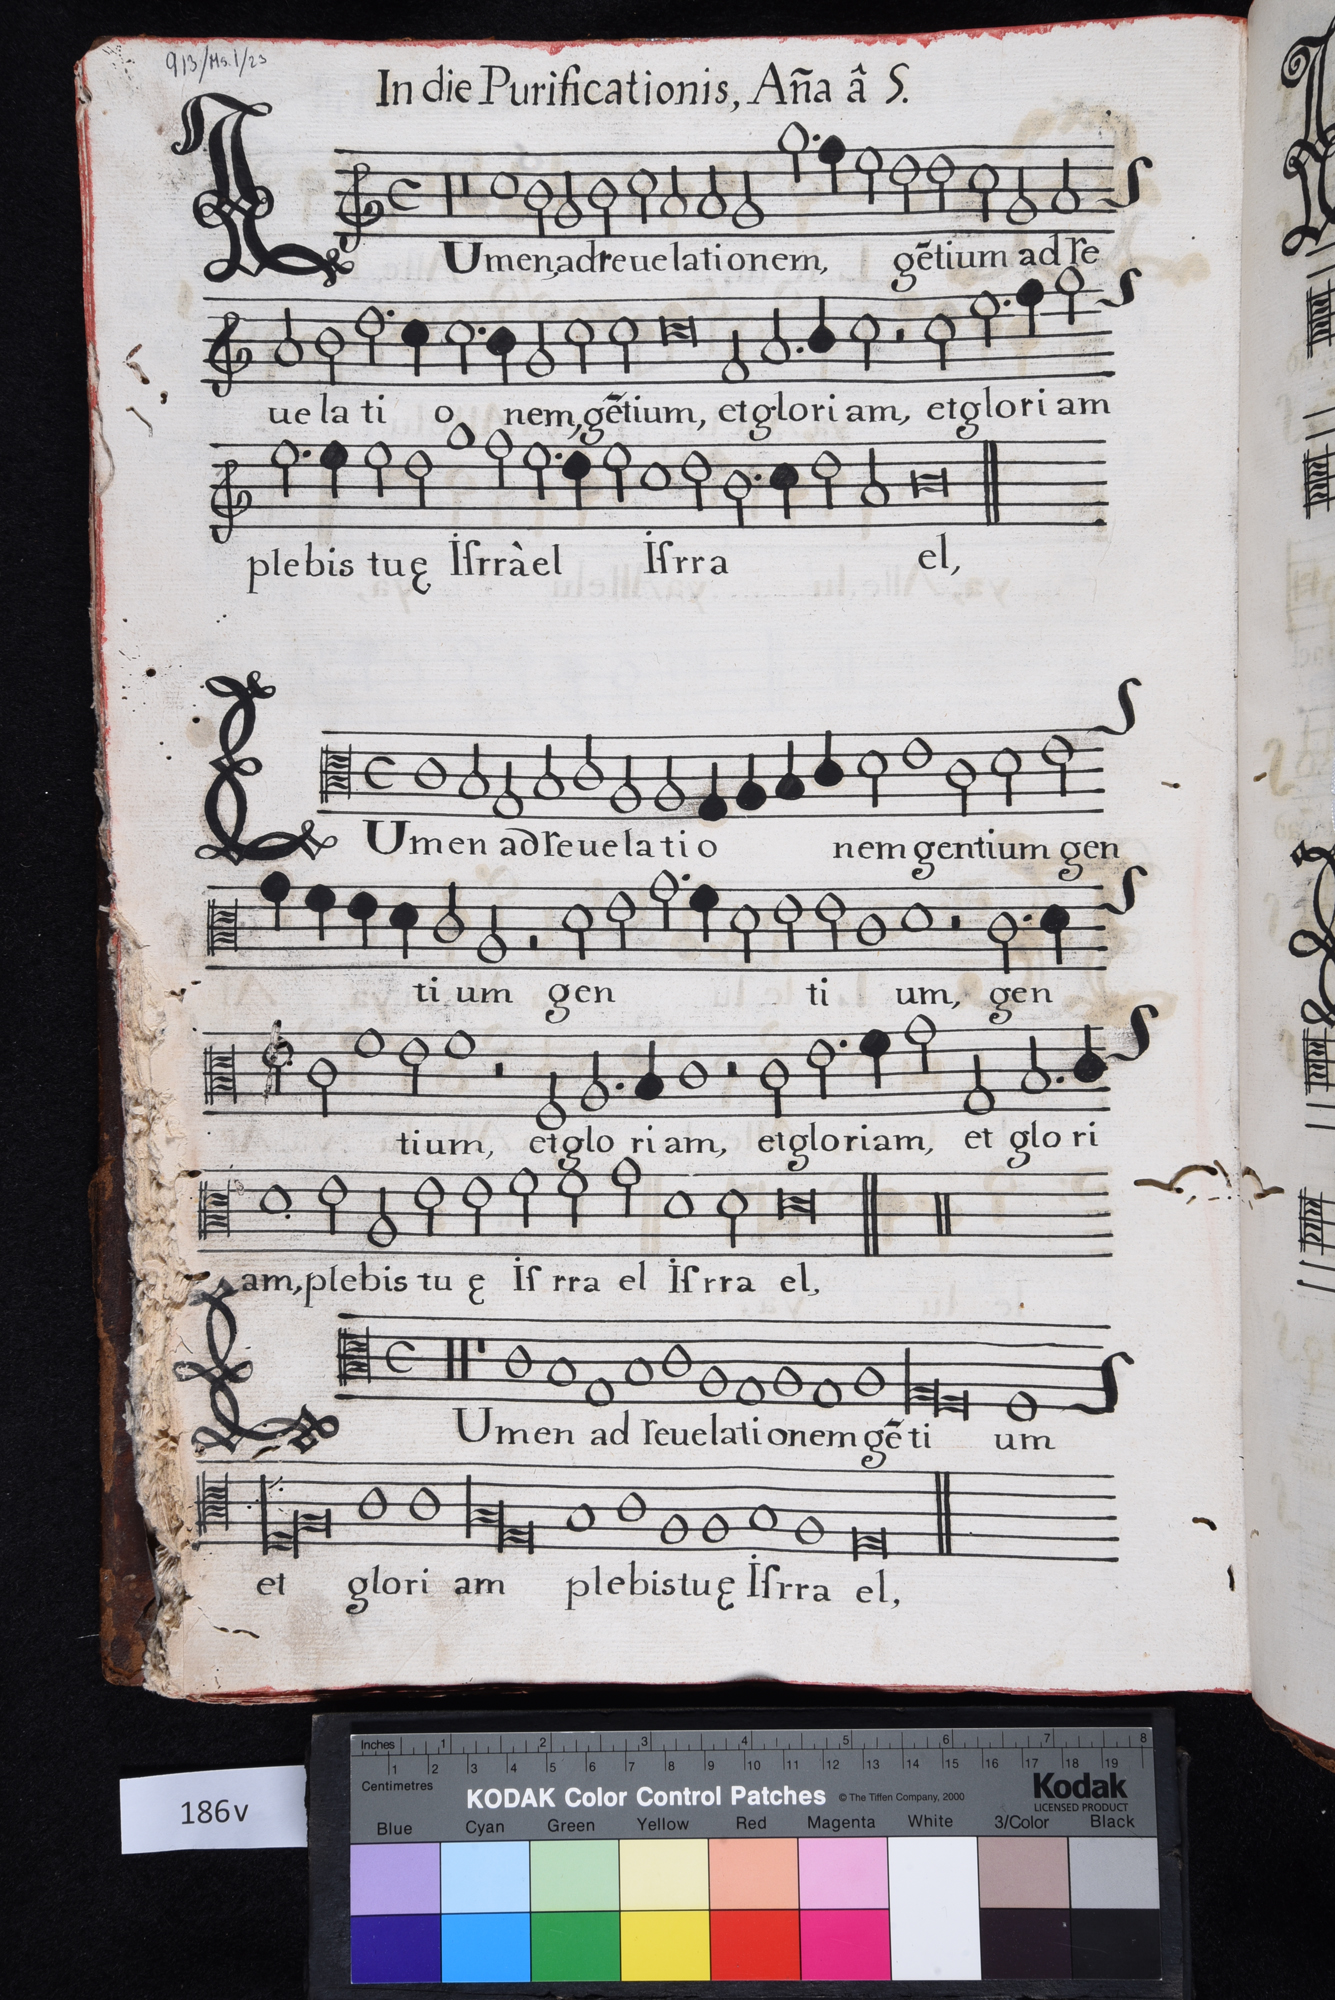 913/Ms.1/23
In die Purificationis, Aña â 5.
LUmen, ad reuelationem, gẽtium ad re
uelatio nem, gẽtium, et gloriam, et gloriam
plebis tuę Iſrràel Iſrra el,
LUmen ad reuelatio nem gentium gen
tium gen ti um, gen
tium, et gloriam, et gloriam, et glori
am, plebis tuę Iſrrael Iſrrael,
LUmen ad reuelationem gẽti um
et gloriam plebis tuę Iſrrael,
186v
Inches 1 2 3 4 5 6 7 8
1 2 3 4 5 6 7 8 9 10 11 12 13 14 15 16 17 18 19
Centimetres
KODAK Color Control Patches © The Tiffen Company, 2000 Kodak
LICENSED PRODUCT
Blue Cyan Green Yellow Red Magenta White 3/Color Black